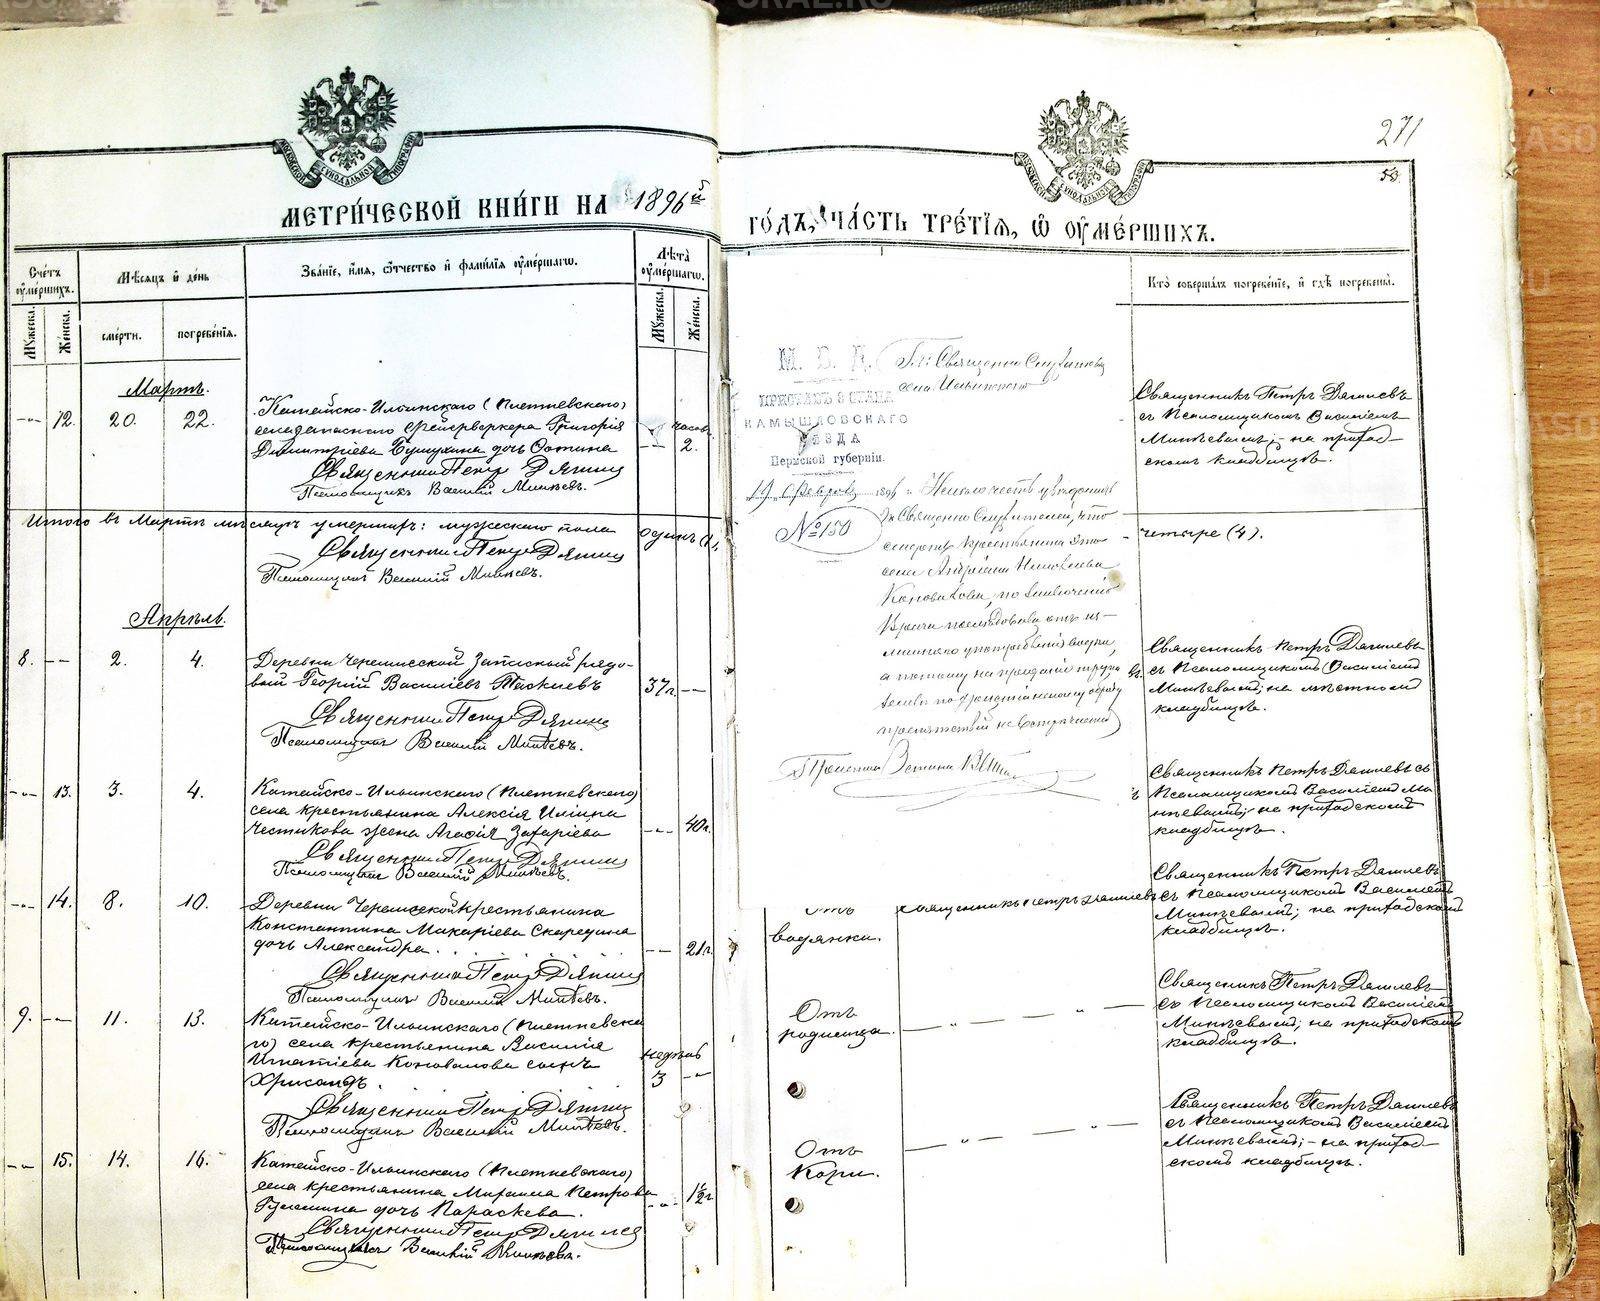 271
МОСКОВСКОЙ СѴНОДАЛЬНОЙ ТИПОГРАФІИ
МОСКОВСКОЙ СѴНОДАЛЬНОЙ ТИПОГРАФІИ
53.
МЕТРИ́ЧЕСКОЙ КНИ́ГИ НА 1896й
ГО́ДЪ, ЧА́СТЬ ТРЕ́ТІЯ, Ѡ҆ ОУ҆МЕ́РШИХЪ.
Сче́тъ оу҆ме́ршихъ.
Мꙋжеска.
Же́нска.
Мѣ́сяцъ и҆ де́нь
сме́рти.
погребе́нія.
Зва́ніе, и҆́мя, ѻ҆́тчество и҆ фами́лія оу҆ме́ршагѡ.
Лѣ́та оу҆ме́ршагѡ.
Мꙋжеска.
Же́нска.
Кто̀ соверша́лъ погребе́ніе, и҆ гдѣ̀ погребены̀.
Мартъ.
-"- 12. 20. 22.
Катайско-Ильинскаго (Плетневскаго)
села запаснаго фейерверкера Григорія
Димитріева дочь
часов.
-"- 2.
Священникъ Петръ Дягилевъ
Псаломщикъ Василій Минѣевъ.
Священникъ Петръ Дягилевъ
съ Псаломщикомъ Василіемъ
Минѣевымъ; - на приход-
скомъ кладбищѣ.
Итого въ Мартѣ мѣсяцѣ умерших: мужескаго пола одинъ (1),
- четыре (4).
Священникъ Петръ Дягилевъ
Псаломщикъ Василій Минѣевъ.
Апрѣль.
8. -"- 2. 4.
Деревни Черемисской запасный рядо-
вой Георгій Василіевъ
37 г. -"-
Священникъ Петръ Дягилевъ
Псаломщикъ Василій Минѣевъ.
Священникъ Петръ Дягилевъ
съ Псаломщикомъ Василіемъ
Минѣевымъ; на мѣстномъ
кладбищѣ.
-"- 13. 3. 4.
Катайско-Ильинскаго (Плетневскаго)
села крестьянина Алексія Иліина
Честикова жена Агафія Захаріева
-"- 40 г.
Священникъ Петръ Дягилевъ
Псаломщикъ Василій Минѣевъ.
Священникъ Петръ Дягилевъ съ
Псаломщикомъ Василіемъ Ми-
нѣевымъ; на приходскомъ
кладбищѣ.
-"- 14. 8. 10.
Деревни Черемисской крестьянина
Константина Макаріева Скоредина
дочь Александра.
-"- 21 г.
Священникъ Петръ Дягилевъ
Псаломщикъ Василій Минѣевъ.
Отъ
водянки.
Священникъ Петръ Дягилевъ
Священникъ Петръ Дягилевъ
съ Псаломщикомъ Василіемъ
Минѣевымъ; на приходскомъ
кладбищѣ.
9. -"- 11. 13.
Катайско-Ильинскаго (Плетневска
го) села крестьянина Василія
Игнатіева Коновалова сынъ
Хрисанфъ.
недѣль
3 -"-
Священникъ Петръ Дягилевъ
Псаломщикъ Василій Минѣевъ.
Отъ
родимца.
- " - " -
Священникъ Петръ Дягилевъ
съ Псаломщикомъ Василіемъ
Минѣевымъ; на приходскомъ
кладбищѣ.
-"- 15. 14. 16.
Катайско-Ильинскаго (Плетневскаго)
села крестьянина Петрова
дочь Параскева.
-"- 1½ г
Священникъ Петръ Дягилевъ
Псаломщикъ Василій Минѣевъ.
Отъ
Кори.
- " - " -
Священникъ Петръ Дягилевъ
съ Псаломщикомъ Василіемъ
Минѣевымъ; - на приход-
скомъ кладбищѣ.
М. В. Д.
ПРИСТАВЪ 3 СТАНА
КАМЫШЛОВСКАГО
УѢЗДА
Пермской губерніи.
19 Февраля 1896 г.
№ 150
Священно Служителямъ
села Ильинскаго
Имѣю честь увѣдомить
Священно Служителей, что
смерть крестьянина этого
села Андріана
Коновалова, по заключенію
Врача послѣдовала отъ из-
лишняго употребленія водки,
а потому на преданіе трупа
земли по христіанскому обряду
препятствій не встрѣчается
Приставъ 3 Стана